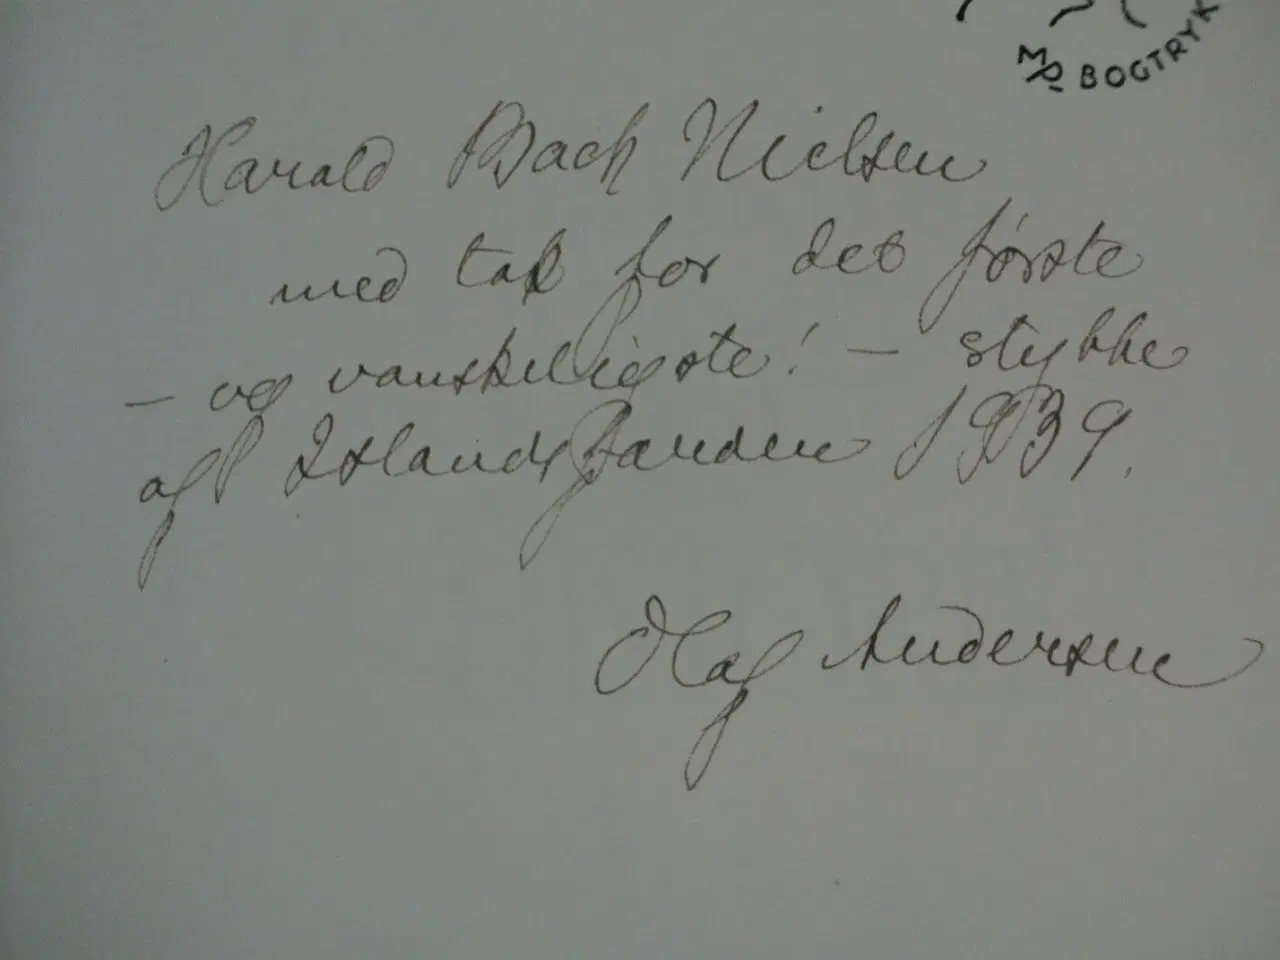 MP. BOGTRYK
Harald Bach Nielsen
med tak for det første
– og vanskeligste! – stykke
af Islandsfærden 1939.
Olaf Andersen